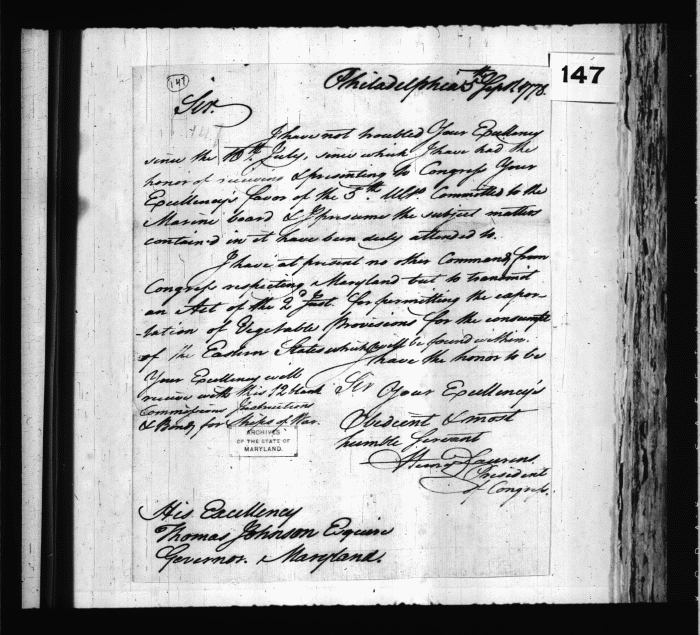 147
147
Philadelphia 5th Sept. 1778.
Sir.
I have not troubled Your Excellency
since the 10th. July. since which I have had the
honor of receiving & presenting to Congress Your
Excellency's favor of the 5th. Ulto. Committed to the
Marine board & I presume the subject matters
contain'd in it have been duly attended to.
I have at present no other Command from
Congress respecting Maryland but to transmit
an Act of the 2d. Inst. for permitting the expor-
-tation of Vegetable Provisions for the consumpt
of the Eastern States which will be found within.
I have the honor to be
Your Excellency will
receive with this 12 blank
Commissions Instructions
& Bonds, for Ships of War.
Sir Your Excellency's
Obedient & most
humble Servant
Henry Laurens.
President
of Congress.
ARCHIVES
OF THE STATE OF
MARYLAND.
His Excellency
Thomas Johnson Esquire
Governor. Maryland.